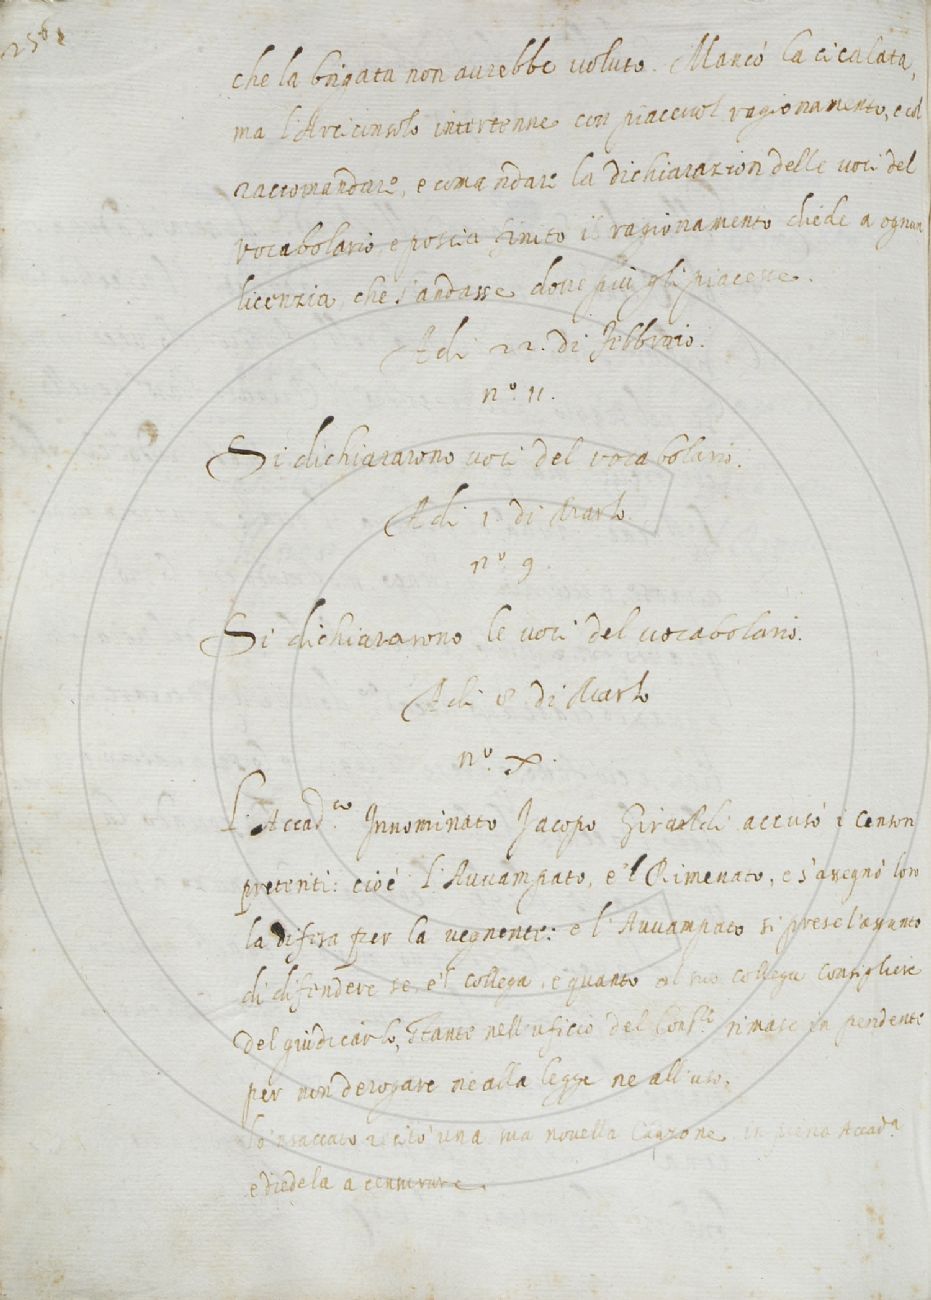 256
che la brigata non aurebbe uoluto. Mancò la cicalata,
ma l'Arciconsolo intertenne con piaceuol ragionamento, e col
raccomandare, e comandare la dichiarazion delle uoci del
vocabolario, e poscia finito il ragionamento diede a ognun
licenzia, che s'andasse doue più gli piacesse.
Adi 22. di Febbraio.
n.º 11.
Si dichiararono uoci del vocabolario.
Adi 1 di Marzo
nº. 9
Si dichiararono le uoci del uocabolario.
Adi 8 di Marzo
nº. X.
L'Accad.co Innominato Jacopo Giraldi accusò i censori
preteriti: cioè l'Auuampato, e'l Rimenato, e s'asegnò loro
la difesa per la vegnente: e l'Auuampato si prese l'assunto
di difendere se, e'l collega, e quanto al suo collega consigliere
del giudicarlo, stante nell'uficio del Cons.le rimase in pendente
per non derogare ne alla legge ne all'uso.
Lo'nsaccato recitò una sua nouella Canzone in piena Accad.a
e diedela a censurare.